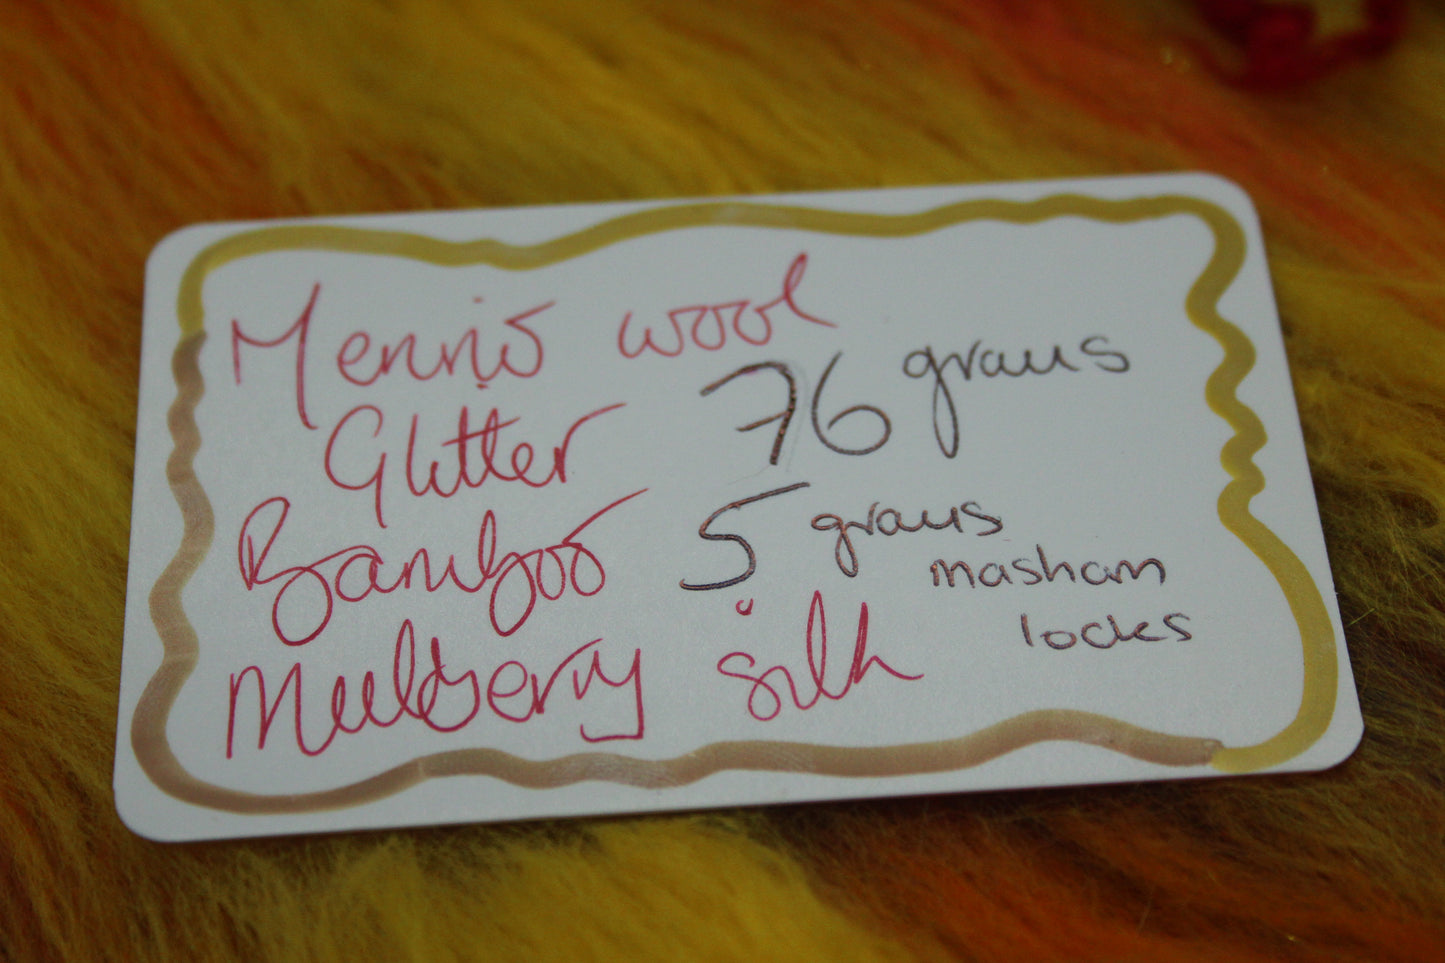 Merino wool
76 grams
Glitter
Bamboo
5 grams
masham
locks
Mulberry silk